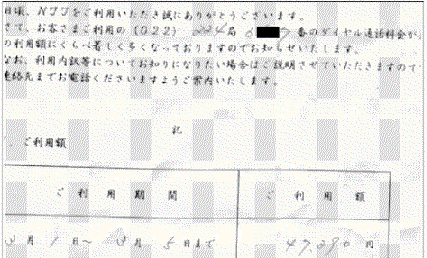 日頃、NTTをご利用いただき誠にありがとうございます。
さて、お客さまご利用の(022) 局 番のダイヤル通話料金が、
の利用額にくらべ著しく多くなっておりますのでお知らせいたします。
なお、利用内訳等についてお知りになりたい場合はご説明させていただきますので
連絡先までお電話くださいますようご案内いたします。
記
、ご利用額
ご利用期間 ご利用額
月1日〜3月5日まで 47,090円